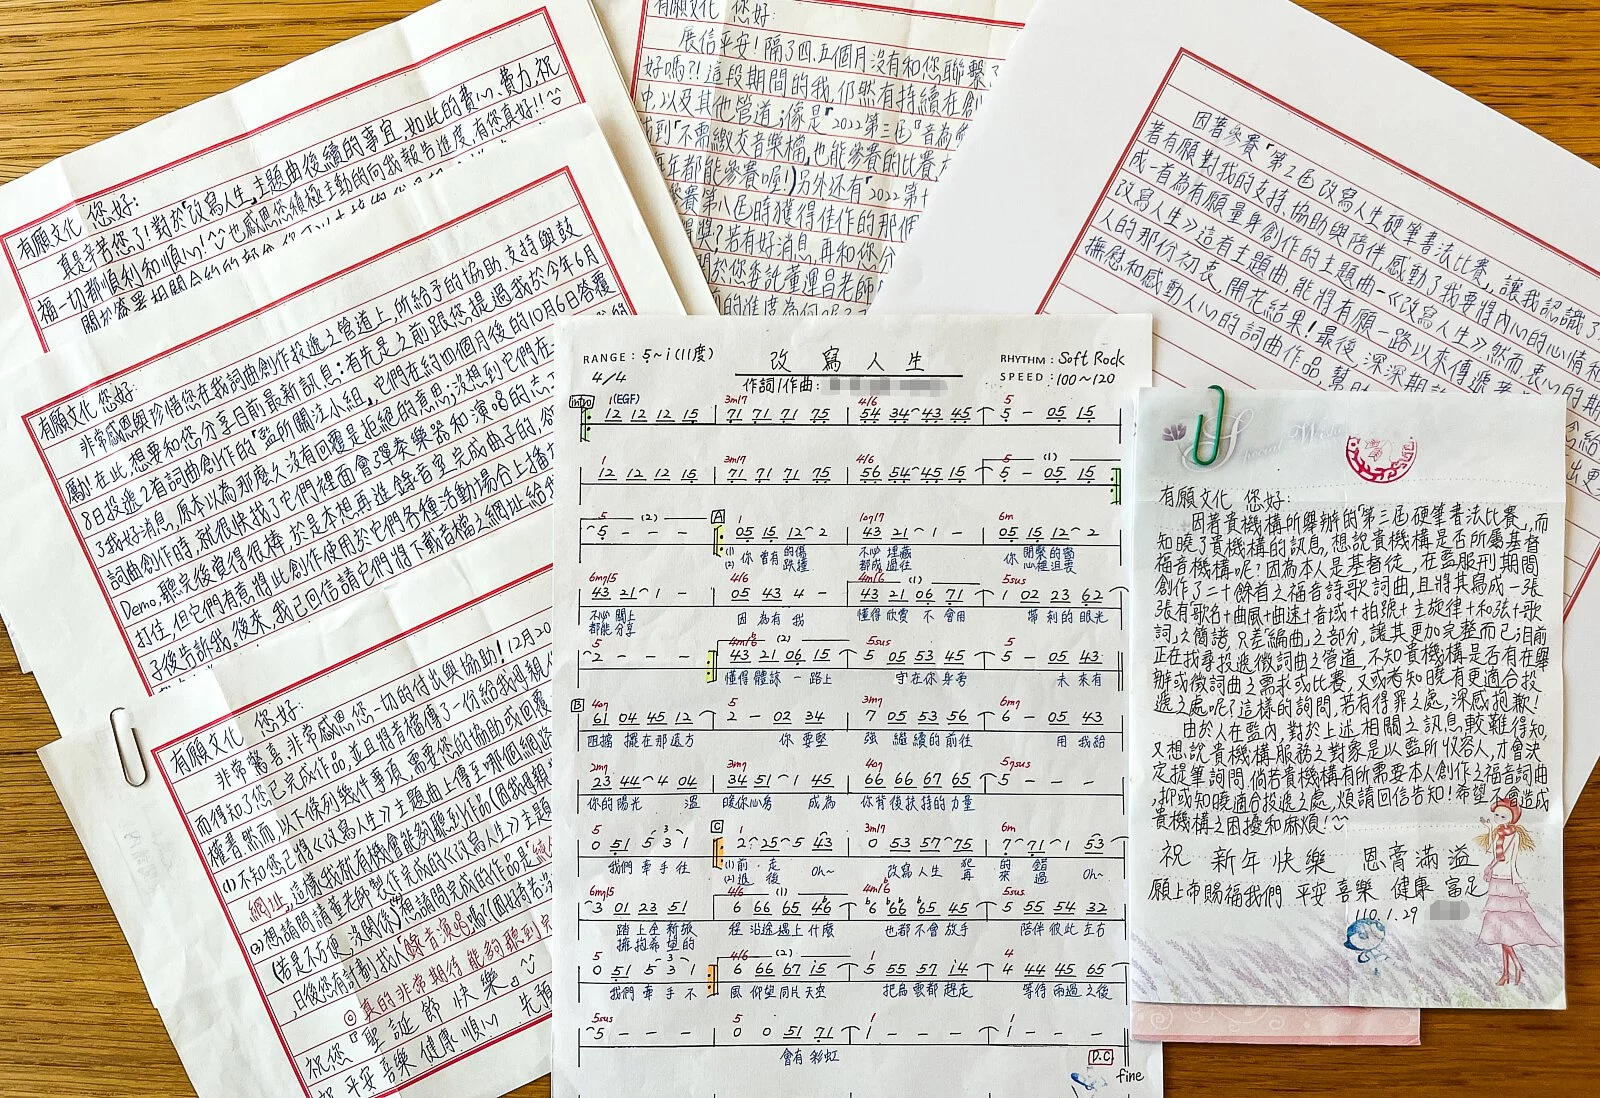 有願文化 您好:
真是辛苦您了!對於『改寫人生』主題曲後續的事宜,如此的費心、費力,祝
福一切都順利和順心!^^也感恩您積極主動的向我報告進度,有您真好!!^^
有願文化 您好:
非常感恩與珍惜您在我詞曲創作投遞之管道上,所給予的協助、支持與鼓
勵!在此,想要和您分享目前最新訊息:有先是之前跟您提過我於今年6月
8日投遞2首詞曲創作的『監所關注小組』,它們在約四個月後的10月6日答覆
了我好消息,原本以為那麼久沒有回覆是拒絕的意思;沒想到它們在
詞曲創作時,就很快找了它們裡面會彈奏樂器和演唱的志
Demo,聽完後覺得很棒,於是本想再進錄音室完成曲子的,
打住,但它們有意將此創作使用於它們各種活動場合上播
子後告訴我。後來,我已回信請它們將下載音檔之網址給
有願文化 您好:
非常驚喜、非常感恩您一切的付出與協助!12月20
而得知了您已完成作品,並且將音檔傳了一份給我母親
權書。然而,以下條列幾件事項,需要您的協助或回覆
(1)不知您已將《改寫人生》主題曲上傳至哪個網路
網址,這樣我就有機會能夠聽到作品(因我母親
(2)想請問請董老師製作完成的《改寫人生》主題
(若是不方便,沒關係)想請問完成的作品是
,日後您有計劃找人『錄音演唱』嗎?(因好奇若
◎真的非常期待能夠聽到完
祝您『聖誕節快樂』^^ 先預
祝 平安 喜樂 健康 順心
有願文化 您好:
展信平安!隔了四、五個月沒有和您聯繫了
好嗎?!這段期間的我,仍然有持續在創
中,以及其他管道;像是『2022第三屆
找到『不需繳交音樂檔,也能參賽的比賽
年都能參賽喔!)另外還有『2022第十
參賽第八屆時獲得佳作的那個
得獎?若有好消息,再和你分
關於您委託董運昌老師
的進度為何呢?
因著參賽『第2屆改寫人生硬筆書法比賽』,讓我認識了
著有願對我的支持、協助與陪伴,感動了我要將內心的心情和
成一首為有願量身創作的主題曲-《改寫人生》。然而,衷心的期
改寫人生》這首主題曲,能將有願一路以來傳遞
人的那份初衷,開花結果!最後,深深期
撫慰和感動人心的詞曲作品,幫
RANGE:5~i(11度)
改寫人生
RHYTHM:Soft Rock
4/4
作詞/作曲:
SPEED:100~120
Intro
1(EGF) 3m/7 4/6 5
12 12 12 15 71 71 71 75 54 34 43 45 5 - 05 15
1 3m/7 4/6 5 (1)
12 12 12 15 71 71 71 75 56 54 45 15 5 - 05 15
5 (2) A 1 1on7 6m
5 - - - 05 15 12 2 43 21 1 - 05 15 12 2
(1) 你曾有的傷 不必埋藏 你 閉緊的窗
(2) 跌撞 都成過往 心裡沮喪
6m/5 4/6 4m/6 (1) 5sus
43 21 1 - 05 43 4 - 43 21 06 71 1 02 23 62
不必關上 因為有我 懂得欣賞 不會用 帶刺的眼光
都能分享
5 4m/6 (2) 5sus 5
2 - - - 43 21 06 15 5 05 53 45 5 - 05 43
懂得體諒 一路上 守在你身旁 未來有
B 4on 5 3m7 6m
61 04 45 12 2 - 02 34 7 05 53 56 6 - 05 43
阻擋 擺在那遠方 你要堅 強 繼續的前往 用我給
2m7 3m7 4on 5
23 44 4 04 34 51 1 45 66 66 67 65 5 - - -
你的陽光 溫 暖你心房 成為 你背後扶持的力量
5 C 1 3m/7 6m
0 51 5 3 1 2 25 5 43 0 53 57 75 7 71 1 53
我們牽手往 (1)前 走 Oh~ 改寫人生 犯 的錯 Oh~
(2)退 後 再 來過
6m/5 4/6 (1) 4m/6 5sus
3 01 23 51 6 66 65 46 6 66 65 45 5 55 54 32
踏上全新旅 程 沿途遇上什麼 也都不會放手 陪伴彼此左右
擁抱希望的
5 4/6 (2) 5 4
0 51 5 3 1 6 66 67 i5 5 55 57 i4 4 44 45 65
我們牽手不 風 仰望同片天空 把烏雲都趕走 等待雨過之後
5sus 5 1 1
5 - - - 0 0 51 71 1 - - - 1 - - -
會有彩虹
D.C
fine
有願文化 您好:
因著貴機構所舉辦的「第三屆硬筆書法比賽」,而
知曉了貴機構的訊息。想說貴機構是否所屬基督
福音機構呢?因為本人是基督徒,在監服刑期間
創作了二十餘首之福音詩歌詞曲,且將其寫成一張
張有歌名+曲風+曲速+音域+拍號+主旋律+和弦+歌
詞」之簡譜,只差「編曲」之部分,讓其更加完整而已;目前
正在找尋投遞徵詞曲之管道,不知貴機構是否有在舉
辦或徵詞曲之需求或比賽,又或者知曉有更適合投
遞之處呢?這樣的詢問,若有得罪之處,深感抱歉!
由於人在監內,對於上述相關之訊息,較難得知,
又想說貴機構服務之對象是以監所收容人,才會決
定提筆詢問,倘若貴機構有所需要本人創作之福音詞曲
,抑或知曉適合投遞之處,煩請回信告知!希望不會造成
貴機構之困擾和麻煩!^^
祝 新年快樂 恩膏滿溢
願上帝賜福我們 平安 喜樂 健康 富足
110.1.29